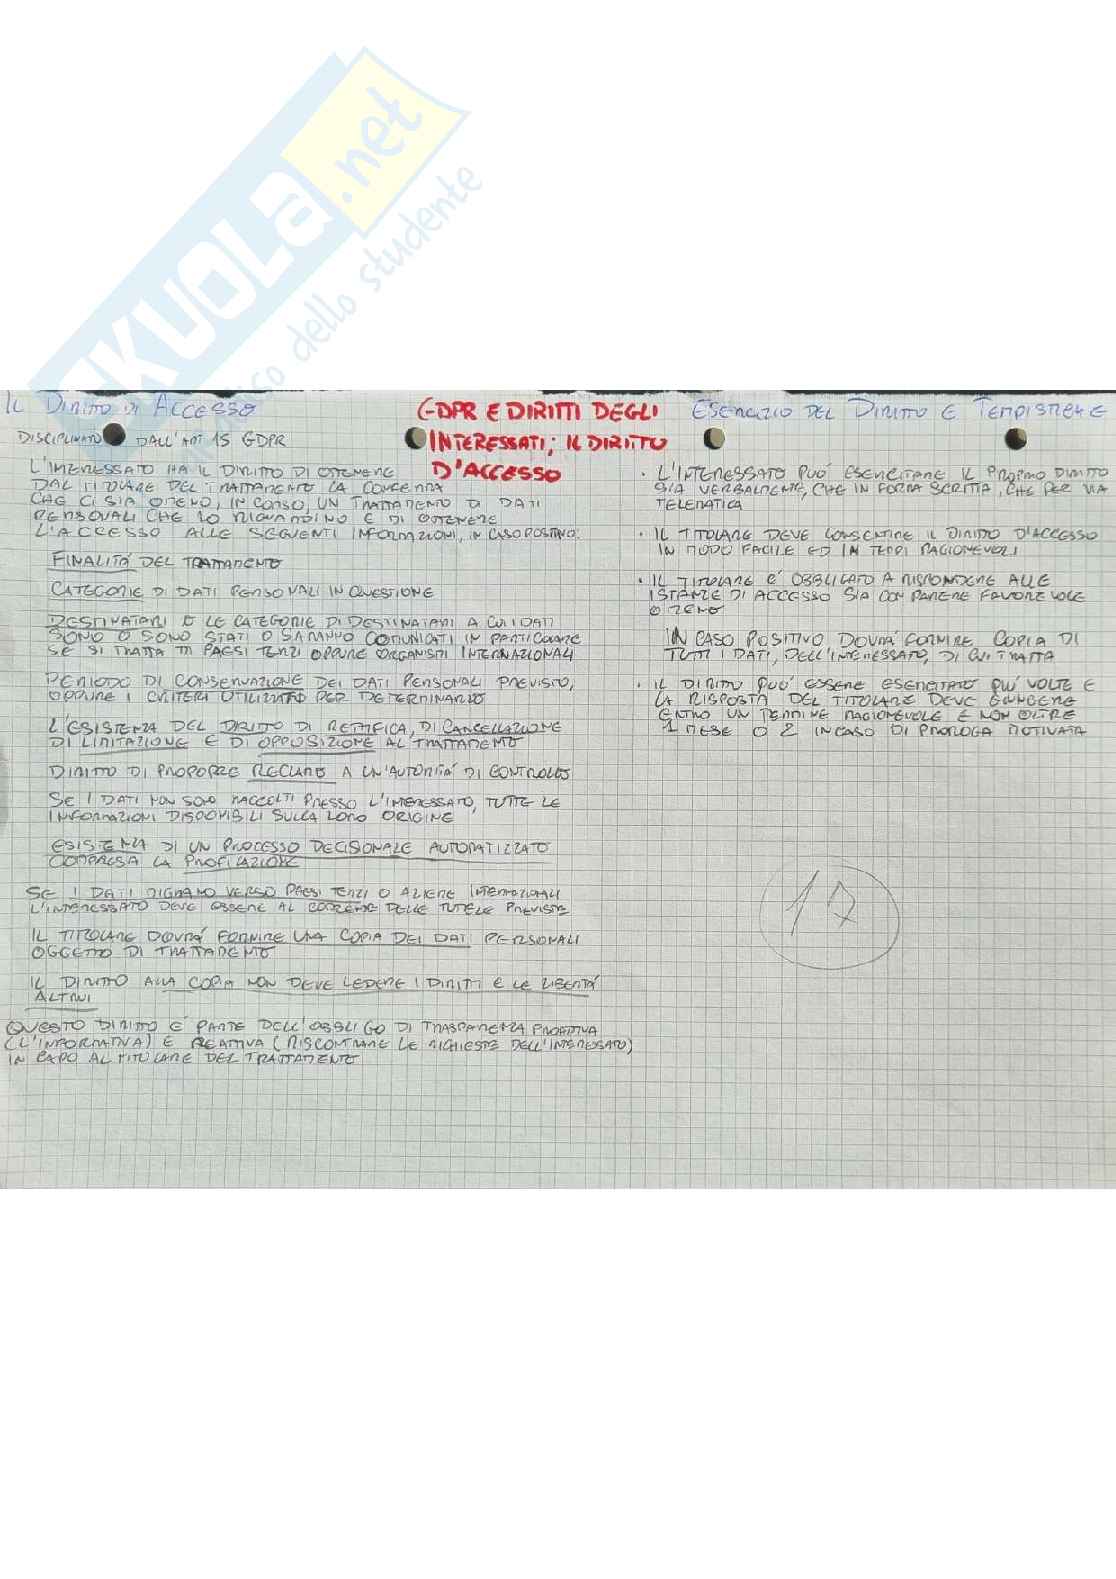 SKUOLA.net
dello studente
IL DIRITTO DI ACCESSO
DISCIPLINATO DALL'ART 15 GDPR
GDPR E DIRITTI DEGLI
INTERESSATI; IL DIRITTO
D'ACCESSO
L'INTERESSATO HA IL DIRITTO DI OTTENERE
DAL TITOLARE DEL TRATTAMENTO LA CONFERMA
CHE CI SIA O MENO, IN CORSO, UN TRATTAMENTO DI DATI
PERSONALI CHE LO RIGUARDINO E DI OTTENERE
L'ACCESSO ALLE SEGUENTI INFORMAZIONI, IN CASO POSITIVO:
FINALITA' DEL TRATTAMENTO
CATEGORIE DI DATI PERSONALI IN QUESTIONE
DESTINATARI O LE CATEGORIE DI DESTINATARI A CUI DATI
SONO O SONO STATI O SARANNO COMUNICATI IN PARTICOLARE
SE SI TRATTA DI PAESI TERZI OPPURE ORGANISMI INTERNAZIONALI
PERIODO DI CONSERVAZIONE DEI DATI PERSONALI PREVISTO,
OPPURE I CRITERI UTILIZZATI PER DETERMINARLO
L'ESISTENZA DEL DIRITTO DI RETTIFICA, DI CANCELLAZIONE
DI LIMITAZIONE E DI OPPOSIZIONE AL TRATTAMENTO
DIRITTO DI PROPORRE RECLAMO A UN'AUTORITA' DI CONTROLLO
SE I DATI NON SONO RACCOLTI PRESSO L'INTERESSATO, TUTTE LE
INFORMAZIONI DISPONIBILI SULLA LORO ORIGINE
ESISTENZA DI UN PROCESSO DECISIONALE AUTOMATIZZATO
COMPRESA LA PROFILAZIONE
SE I DATI MIGRANO VERSO PAESI TERZI O INTERNAZIONALI
L'INTERESSATO DEVE ESSERE AL CORRENTE DELLE TUTELE PREVISTE
IL TITOLARE DOVRA' FORNIRE UNA COPIA DEI DATI PERSONALI
OGGETTO DI TRATTAMENTO
IL DIRITTO ALLA COPIA NON DEVE LEDERE I DIRITTI E LE LIBERTA'
ALTRUI
QUESTO DIRITTO E' PARTE DELL'OBBLIGO DI TRASPARENZA PROATTIVA
(L'INFORMATIVA) E REATTIVA (RISCONTRARE LE RICHIESTE DELL'INTERESSATO)
IN CAPO AL TITOLARE DEL TRATTAMENTO
ESERCIZIO DEL DIRITTO E TEMPISTICHE
· L'INTERESSATO PUO' ESERCITARE IL PROPRIO DIRITTO
SIA VERBALMENTE, CHE IN FORMA SCRITTA, CHE PER VIA
TELEMATICA
· IL TITOLARE DEVE CONSENTIRE IL DIRITTO D'ACCESSO
IN MODO FACILE ED IN TEMPI RAGIONEVOLI
· IL TITOLARE E' OBBLIGATO A RISPONDERE ALLE
ISTANZE DI ACCESSO SIA CON PARERE FAVOREVOLE
O MENO
IN CASO POSITIVO DOVRA' FORNIRE COPIA DI
TUTTI I DATI, DELL'INTERESSATO, DI CUI TRATTA
· IL DIRITTO PUO' ESSERE ESERCITATO PIU' VOLTE E
LA RISPOSTA DEL TITOLARE DEVE GIUNGERE
ENTRO UN TERMINE RAGIONEVOLE E NON OLTRE
1 MESE O 2 IN CASO DI PROROGA MOTIVATA
17